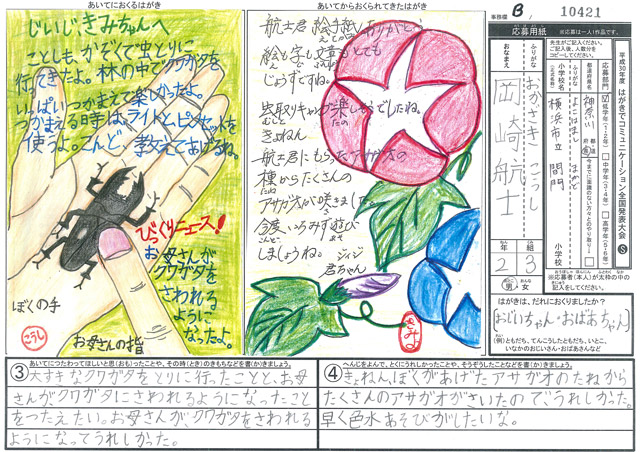 あいてにおくるはがき
じいじ、きみちゃんへ
ことしも、かぞくで虫とりに
行ってきたよ。林の中でクワガタを
いっぱいつかまえて楽しかったよ。
つかまえる時は、ライトとピンセットを
使うよ。こんど、教えてあげるね。
びっくりニュース!
お母さんが
クワガタを
さわれる
ように
なったよ。
ぼくの手
こうし
お母さんの指
あいてからおくられてきたはがき
航士君 絵手紙ありがとう。
絵も字も文章もとても
じょうずですね。
虫取りキャンプ楽しそうでしたね。
きょねん
航士君にもらったアサガオの
種からたくさんの
アサガオが咲きました
今度、いろみず遊び
しましょうね。
ジィジ
君ちゃん
きみ子
事務欄 B 10421
応募用紙
※応募者は一人1作品です。
先生がご記入ください。
ご記入後、人数分を
コピーしてください。
平成30年度 はがきでコミュニケーション全国発表大会 S
応募部門
低学年(1・2年)
中学年(3・4年)
高学年(5・6年)
都道府県名
神奈川
都道府県
小学校名
ふりがな
横浜市立 間門
小学校
おなまえ
ふりがな
おかざき こうし
岡崎航士
年 組
2 3
男 女
※応募者(本人)が太枠の中の
記入をしてください。
はがきは、だれにおくりましたか?
おじいちゃん・おばあちゃん
(例)ともだち、てんこうしたともだち、いとこ、
いなかのおじいさん・おばあさんなど
③ あいてにつたわってほしいと思(おも)ったことや、その時(とき)のきもちなどを書(か)きましょう。
大すきなクワガタをとりに行ったことと、お母
さんがクワガタにさわれるようになったこと
をつたえたい。お母さんが、クワガタをさわれる
ようになってうれしかった。
④ へんじをよんで、とくにうれしかったことや、そうぞうしたことなどを書(か)きましょう。
きょねん、ぼくがあげたアサガオのたねから
たくさんのアサガオがさいたのでうれしかった。
早く色水あそびがしたいな。